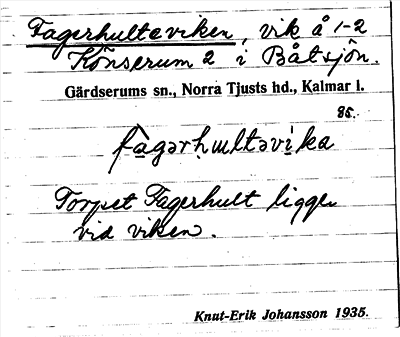 Fagerhulteviken, vik å 1-2
Könserum 2 i Båtsjön.
Gärdserums sn., Norra Tjusts hd., Kalmar l.
85.
fa̱gərḥultəvi̱ka
Torpet Fagerhult ligger
vid viken.
Knut-Erik Johansson 1935.